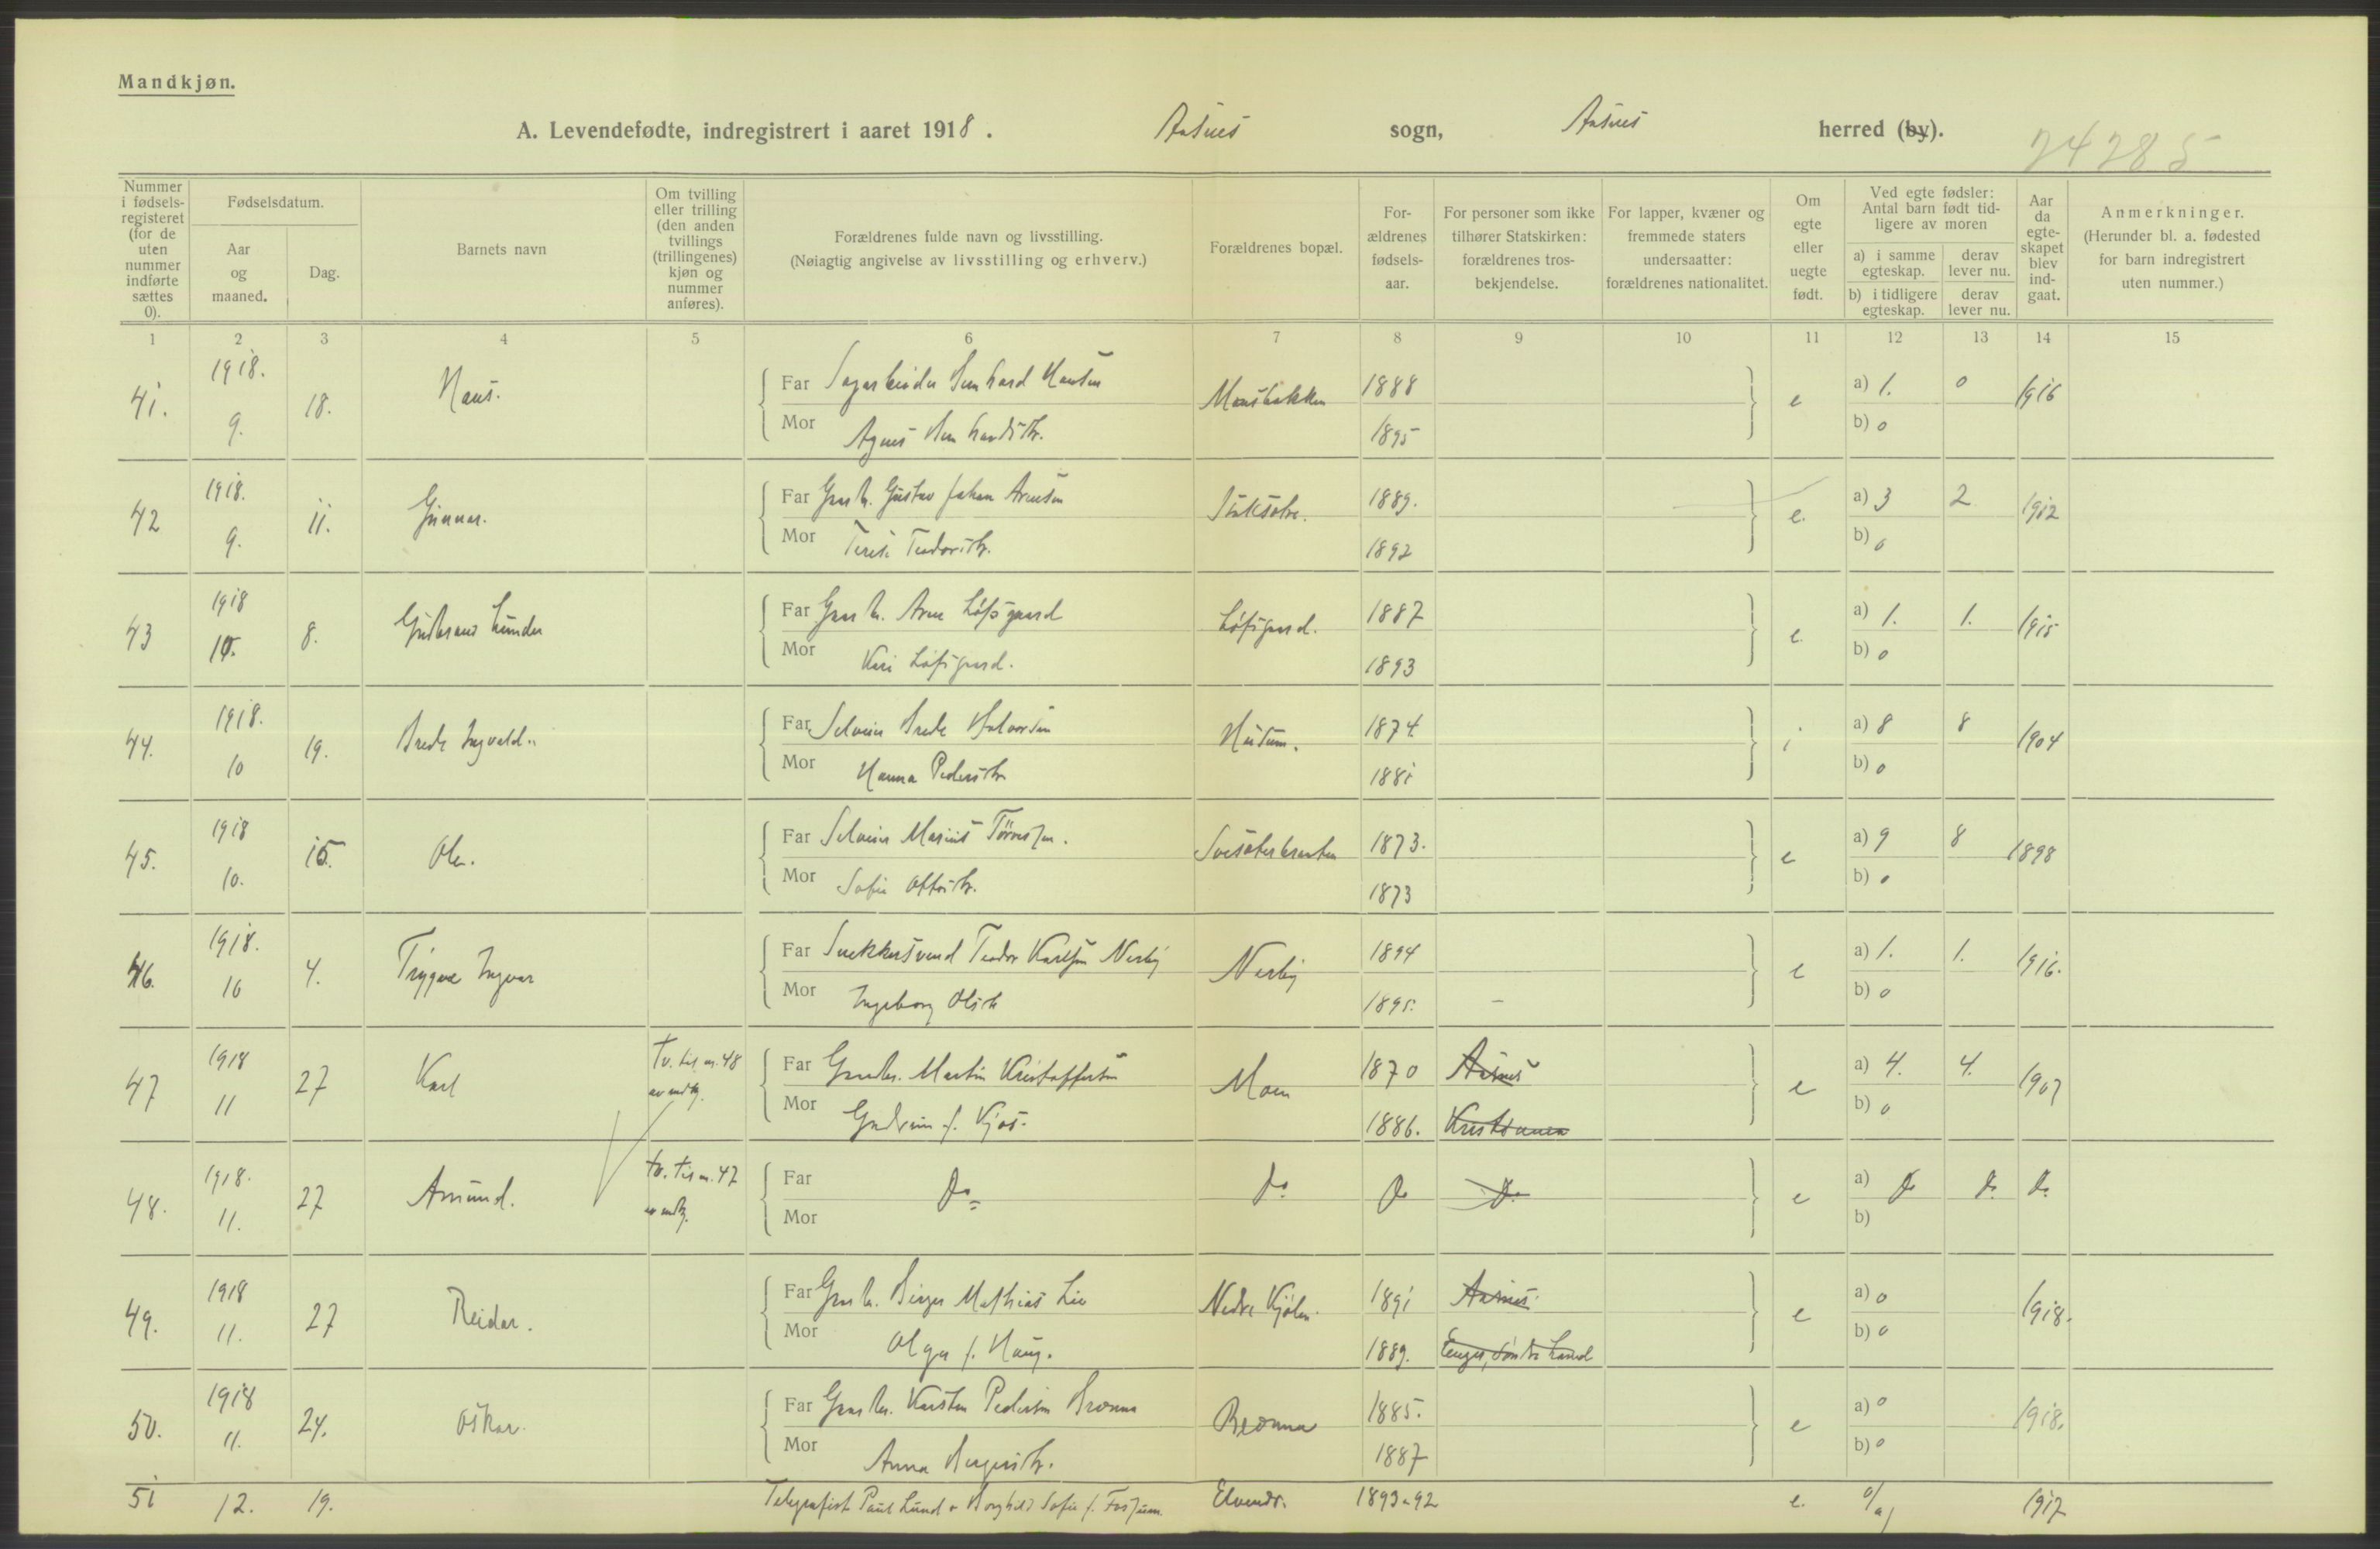 Mandkjøn.
A. Levendefødte, indregistrert i aaret 1918. Aasnes sogn, Aasnes herred (by).
24285
Nummer i fødselsregisteret (for de uten nummer indførte sættes 0).
Fødselsdatum.
Aar og maaned.
Dag.
Barnets navn
Om tvilling eller trilling (den anden tvillings (trillingenes) kjøn og nummer anføres).
Forældrenes fulde navn og livsstilling.
(Nøiagtig angivelse av livsstilling og erhverv.)
Forældrenes bopæl.
Forældrenes fødselsaar.
For personer som ikke tilhører Statskirken: forældrenes trosbekjendelse.
For lapper, kvæner og fremmede staters undersaatter: forældrenes nationalitet.
Om egte eller uegte født.
Ved egte fødsler: Antal barn født tidligere av moren
a) i samme egteskap.
derav lever nu.
b) i tidligere egteskap.
derav lever nu.
Aar da egteskapet blev indgaat.
Anmerkninger.
(Herunder bl. a. fødested for barn indregistrert uten nummer.)
1 2 3 4 5 6 7 8 9 10 11 12 13 14 15
41. 1918. 9. 18. Hans. Far Hansen 1888 e a) 1. 0 1916
Mor Agnes 1895 b) 0
42 1918. 9. 11. Gunnar. Far Grbr. Gustav Johan Arnesen 1889. e. a) 3 2 1912
Mor Terese Teodorsdtr. 1892 b) 0
43 1918 10. 8. Gudbrand Far Grbr. Arne Løfsgaard Løfsgaard. 1887 e. a) 1. 1. 1915
Mor Kari Løfsgaard. 1893 b) 0
44. 1918. 10 19. Brede Ingvald Far Selveier Brede Halvorsen 1874. a) 8 8 1904
Mor Hanna Pedersdtr 1881 b) 0
45. 1918 10. 15. Ole. Far Selveier Marius 1873. e a) 9 8 1898
Mor Sofie Ottosdtr. 1873 b) 0
46. 1918. 10 4. Trygve Ingvar Far Snekkersvend Teodor Karlsen Nerby Nerby 1894 e a) 1. 1. 1916.
Mor Ingeborg Olsdtr 1895. b) 0
47 1918 11 27 Karl tv. til nr. 48 Far Grbr. Martin Kristoffersen Moen 1870 Aasnes e a) 4. 4. 1907
av mdkj. Mor Gudrun f. Kjos. 1886. b) 0
48. 1918. 11. 27 Amund. tv. til nr. 47 Far Do Do Do Do e a) Do Do Do
av mdkj. Mor b)
49. 1918 11. 27 Reidar. Far Grbr. Birger Mathias Lie Nedre Kjølen. 1891 Aasnes. e a) 0 1918.
Mor Olga f. Haug. 1889. b) 0
50. 1918 11. 24. Oskar. Far Grbr. Karsten Pedersen Bronna Bronna 1885. e a) 0 1918.
Mor Anna Birgersdtr. 1887 b) 0
51 12. 19. Telegrafist Paul Lund + Borghild Sofie f. Fossum. Elvendr. 1893-92 e. 1917